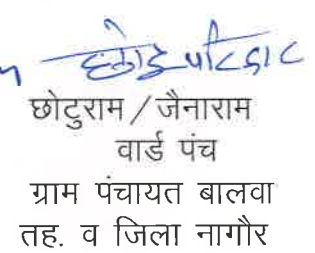 छोटुराम / जैनाराम
वार्ड पंच
ग्राम पंचायत बालवा
तह. व जिला नागौर